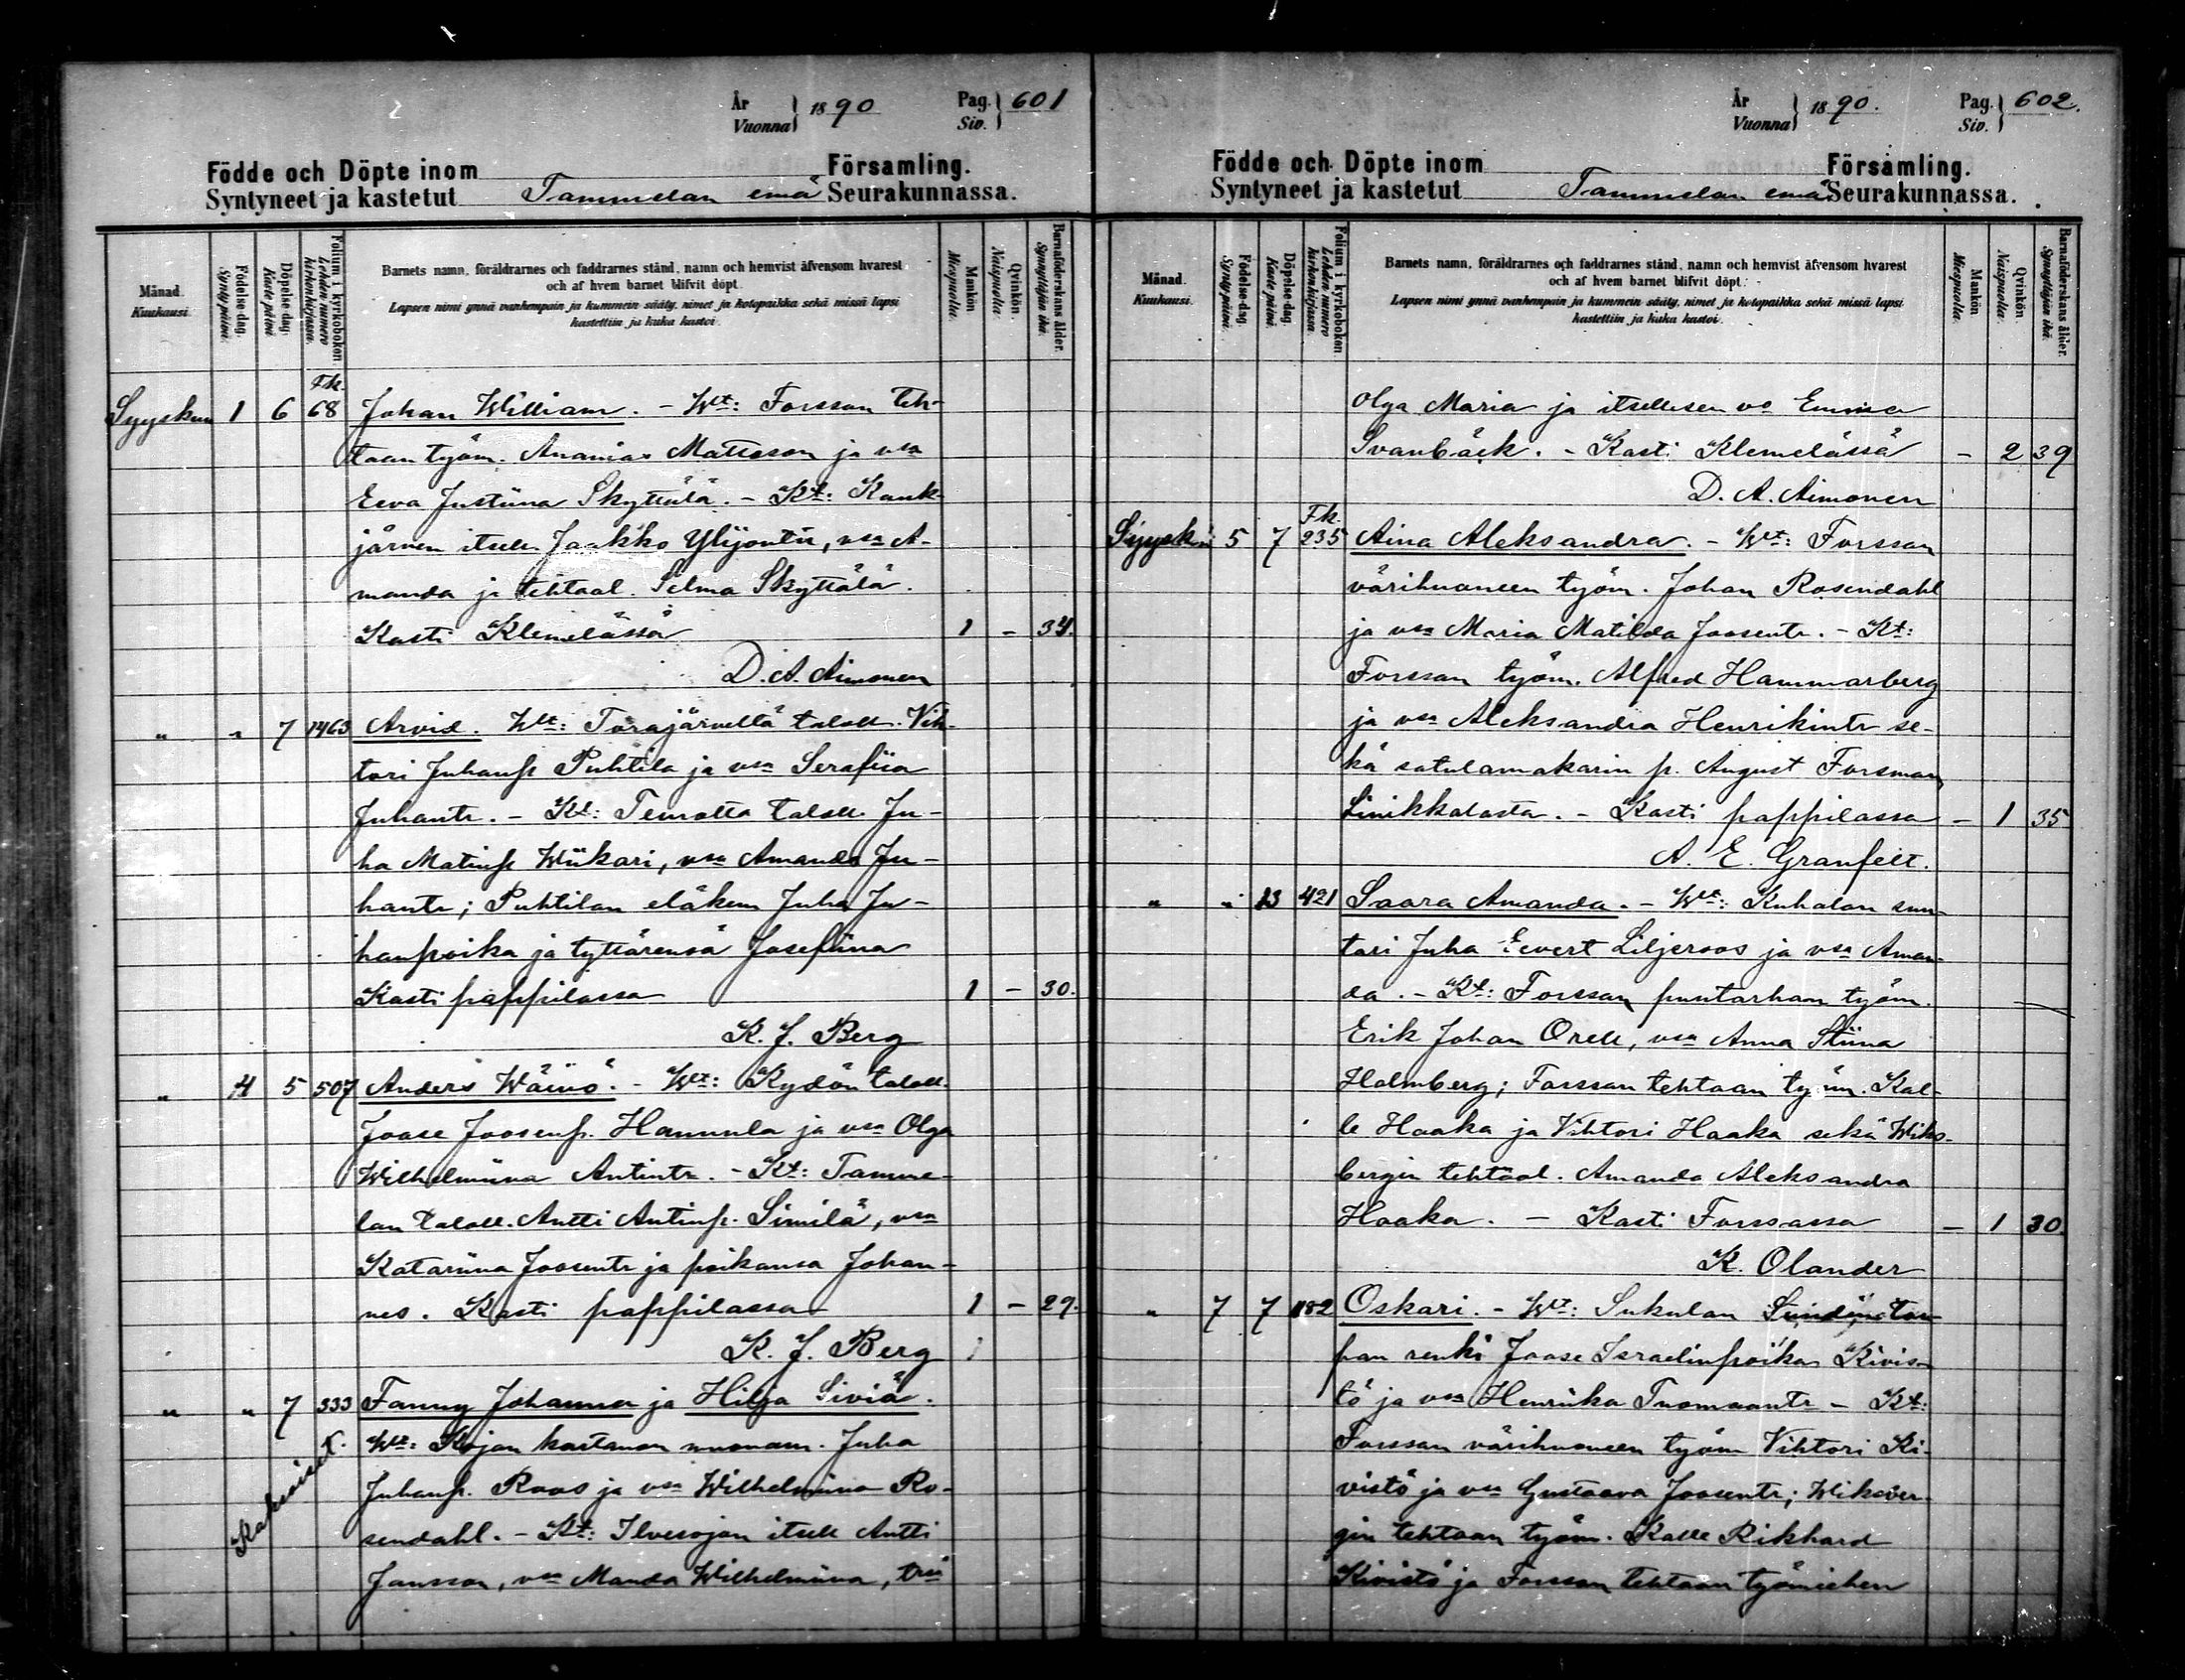 År Vuonna 1890 Pag. Siv. 601
Födde och Döpte inom Församling.
Syntyneet ja kastetut Tammelan emä Seurakunnassa.
Månad. Kuukausi.
Födelse-dag. Syntypäivä.
Döpelse-dag. Kastepäivä.
Folium i kyrkoboken Lehden numero kirkonkirjassa.
Barnets namn, föräldrarnes och faddrarnes stånd, namn och hemvist äfvensom hvarest
och af hvem barnet blifvit döpt.
Lapsen nimi ynnä vanhempain ja kummein sääty, nimet ja kotopaikka sekä missä lapsi
kastettiin ja kuka kastoi.
Mankön Miespuolia.
Qvinkön. Naispuolia.
Barnaföderskans ålder. Synnyttäjän ikä.
Fk.
Syyskuu 1 6 68 Johan William. - Wt: Forssan teh-
taan työm. Ananias Mattsson ja vsa
Eeva Justiina Skyttälä. - Kt: Kauk-
järven itsell. Jaakko Ylijontii, vsa A-
manda ja tehtaal. Selma Skyttälä.
Kasti Klemelässä 1 - 34.
D. A. Aimonen
" " 7 1463 Arvid. Wt: Torajärveltä taloll. Vih-
tori Juhanp. Puhtila ja vsa Serafiia
Juhantr. - Kt: Teurolta taloll. Ju-
ha Matinp. Wiikari, vsa Amanda Ju-
hantr; Puhtilan eläkem Juha Ju-
hanpoika ja tyttärensä Josefiina
Kasti pappilassa 1 - 30.
K. J. Berg
" 4 5 507 Anders Wäinö. - Wt: Kydön taloll.
Joose Joosenp. Hannula ja vsa Olga
Wilhelmiina Antintr. - Kt: Tamme-
lan taloll. Antti Antinp. Simila, vsa
Katariina Joosentr ja poikansa Johan-
nes. Kasti pappilassa 1 - 29.
K. J. Berg
" " 7 333 Fanny Johanna ja Hilja Siviä.
Kaksoiset.
Wt: Kojon kartanon muonam. Juha
Juhanp. Roos ja vsa Wilhelmiina Ro-
sendahl. - Kt: Ilvesojan itsell Antti
Jansson, vsa Manda Wilhelmiina, trii
År Vuonna 1890. Pag. Siv. 602.
Födde och Döpte inom Församling.
Syntyneet ja kastetut Tammelan emä Seurakunnassa.
Månad. Kuukausi.
Födelse-dag. Syntypäivä.
Döpelse-dag. Kastepäivä.
Folium i kyrkoboken Lehden numero kirkonkirjassa.
Barnets namn, föräldrarnes och faddrarnes stånd, namn och hemvist äfvensom hvarest
och af hvem barnet blifvit döpt.
Lapsen nimi ynnä vanhempain ja kummein sääty, nimet ja kotopaikka sekä missä lapsi
kastettiin ja kuka kastoi.
Mankön Miespuolia.
Qvinkön. Naispuolia.
Barnaföderskans ålder. Synnyttäjän ikä.
Olga Maria ja itsellisen vo Emma
Svanbäck. - Kasti Klemelässä - 2 39
D. A. Aimonen
Fk.
Syysk. 5 7 235 Aina Aleksandra. - Wt: Forssan
värihuoneen työm. Johan Rosendahl
ja vsa Maria Matilda Joosentr. - Kt:
Forssan työm. Alfred Hammarberg
ja vsa Aleksandra Henrikintr se-
kä satulamakarin p. August Forsman
Linikkalasta. - Kasti pappilassa - 1 35
A. E. Granfelt.
" " 13 421 Saara Amanda. - Wt: Kuhalan suu-
tari Juha Eevert Liljeroos ja vsa Aman-
da. - Kt: Forssan puutarhan työm.
Erik Johan Orell, vsa Anna Stiina
Holmberg; Forssan tehtaan työm. Kal-
le Haaka ja Vihtori Haaka sekä Wiks-
bergin tehtaal. Amanda Aleksandra
Haaka. - Kasti Forssassa - 1 30.
K. Olander
" 7 7 1182 Oskari. - Wt: Sukulan tor-
pan renki Joose Israelinpoika Kivis-
tö ja vsa Henriika Tuomaantr - Kt:
Forssan värihuoneen työm Vihtori Ki-
vistö ja vsa Gustaava Joosentr; Wiksber-
gin tehtaan työm. Kalle Rikhard
Kivistö ja Forssan tehtaan työmiehen